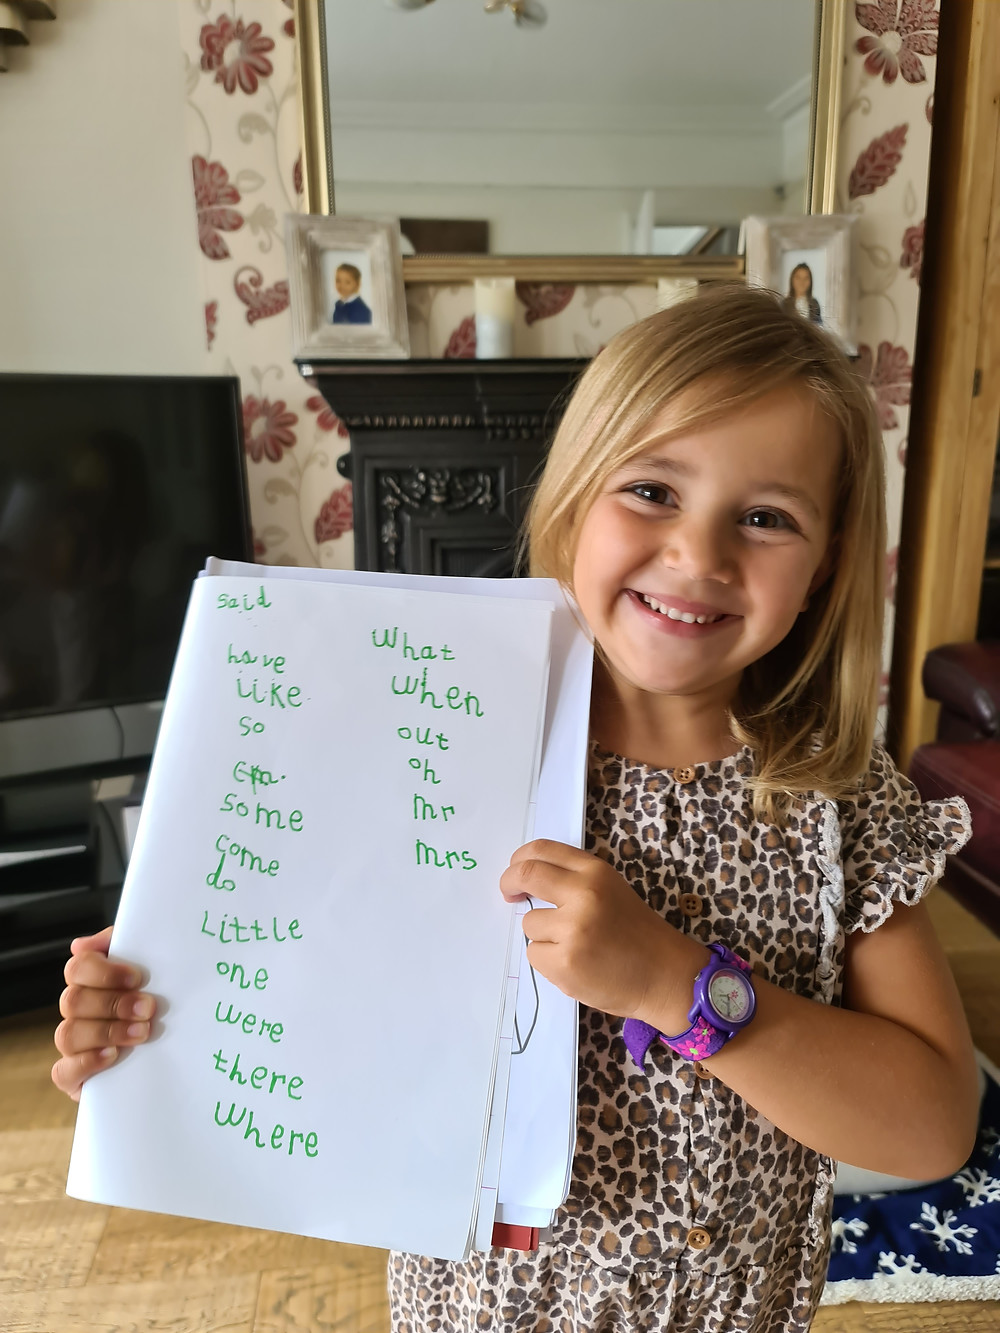 said
have
like
so
some
come
do
Little
one
were
there
where
what
when
out
oh
mr
mrs